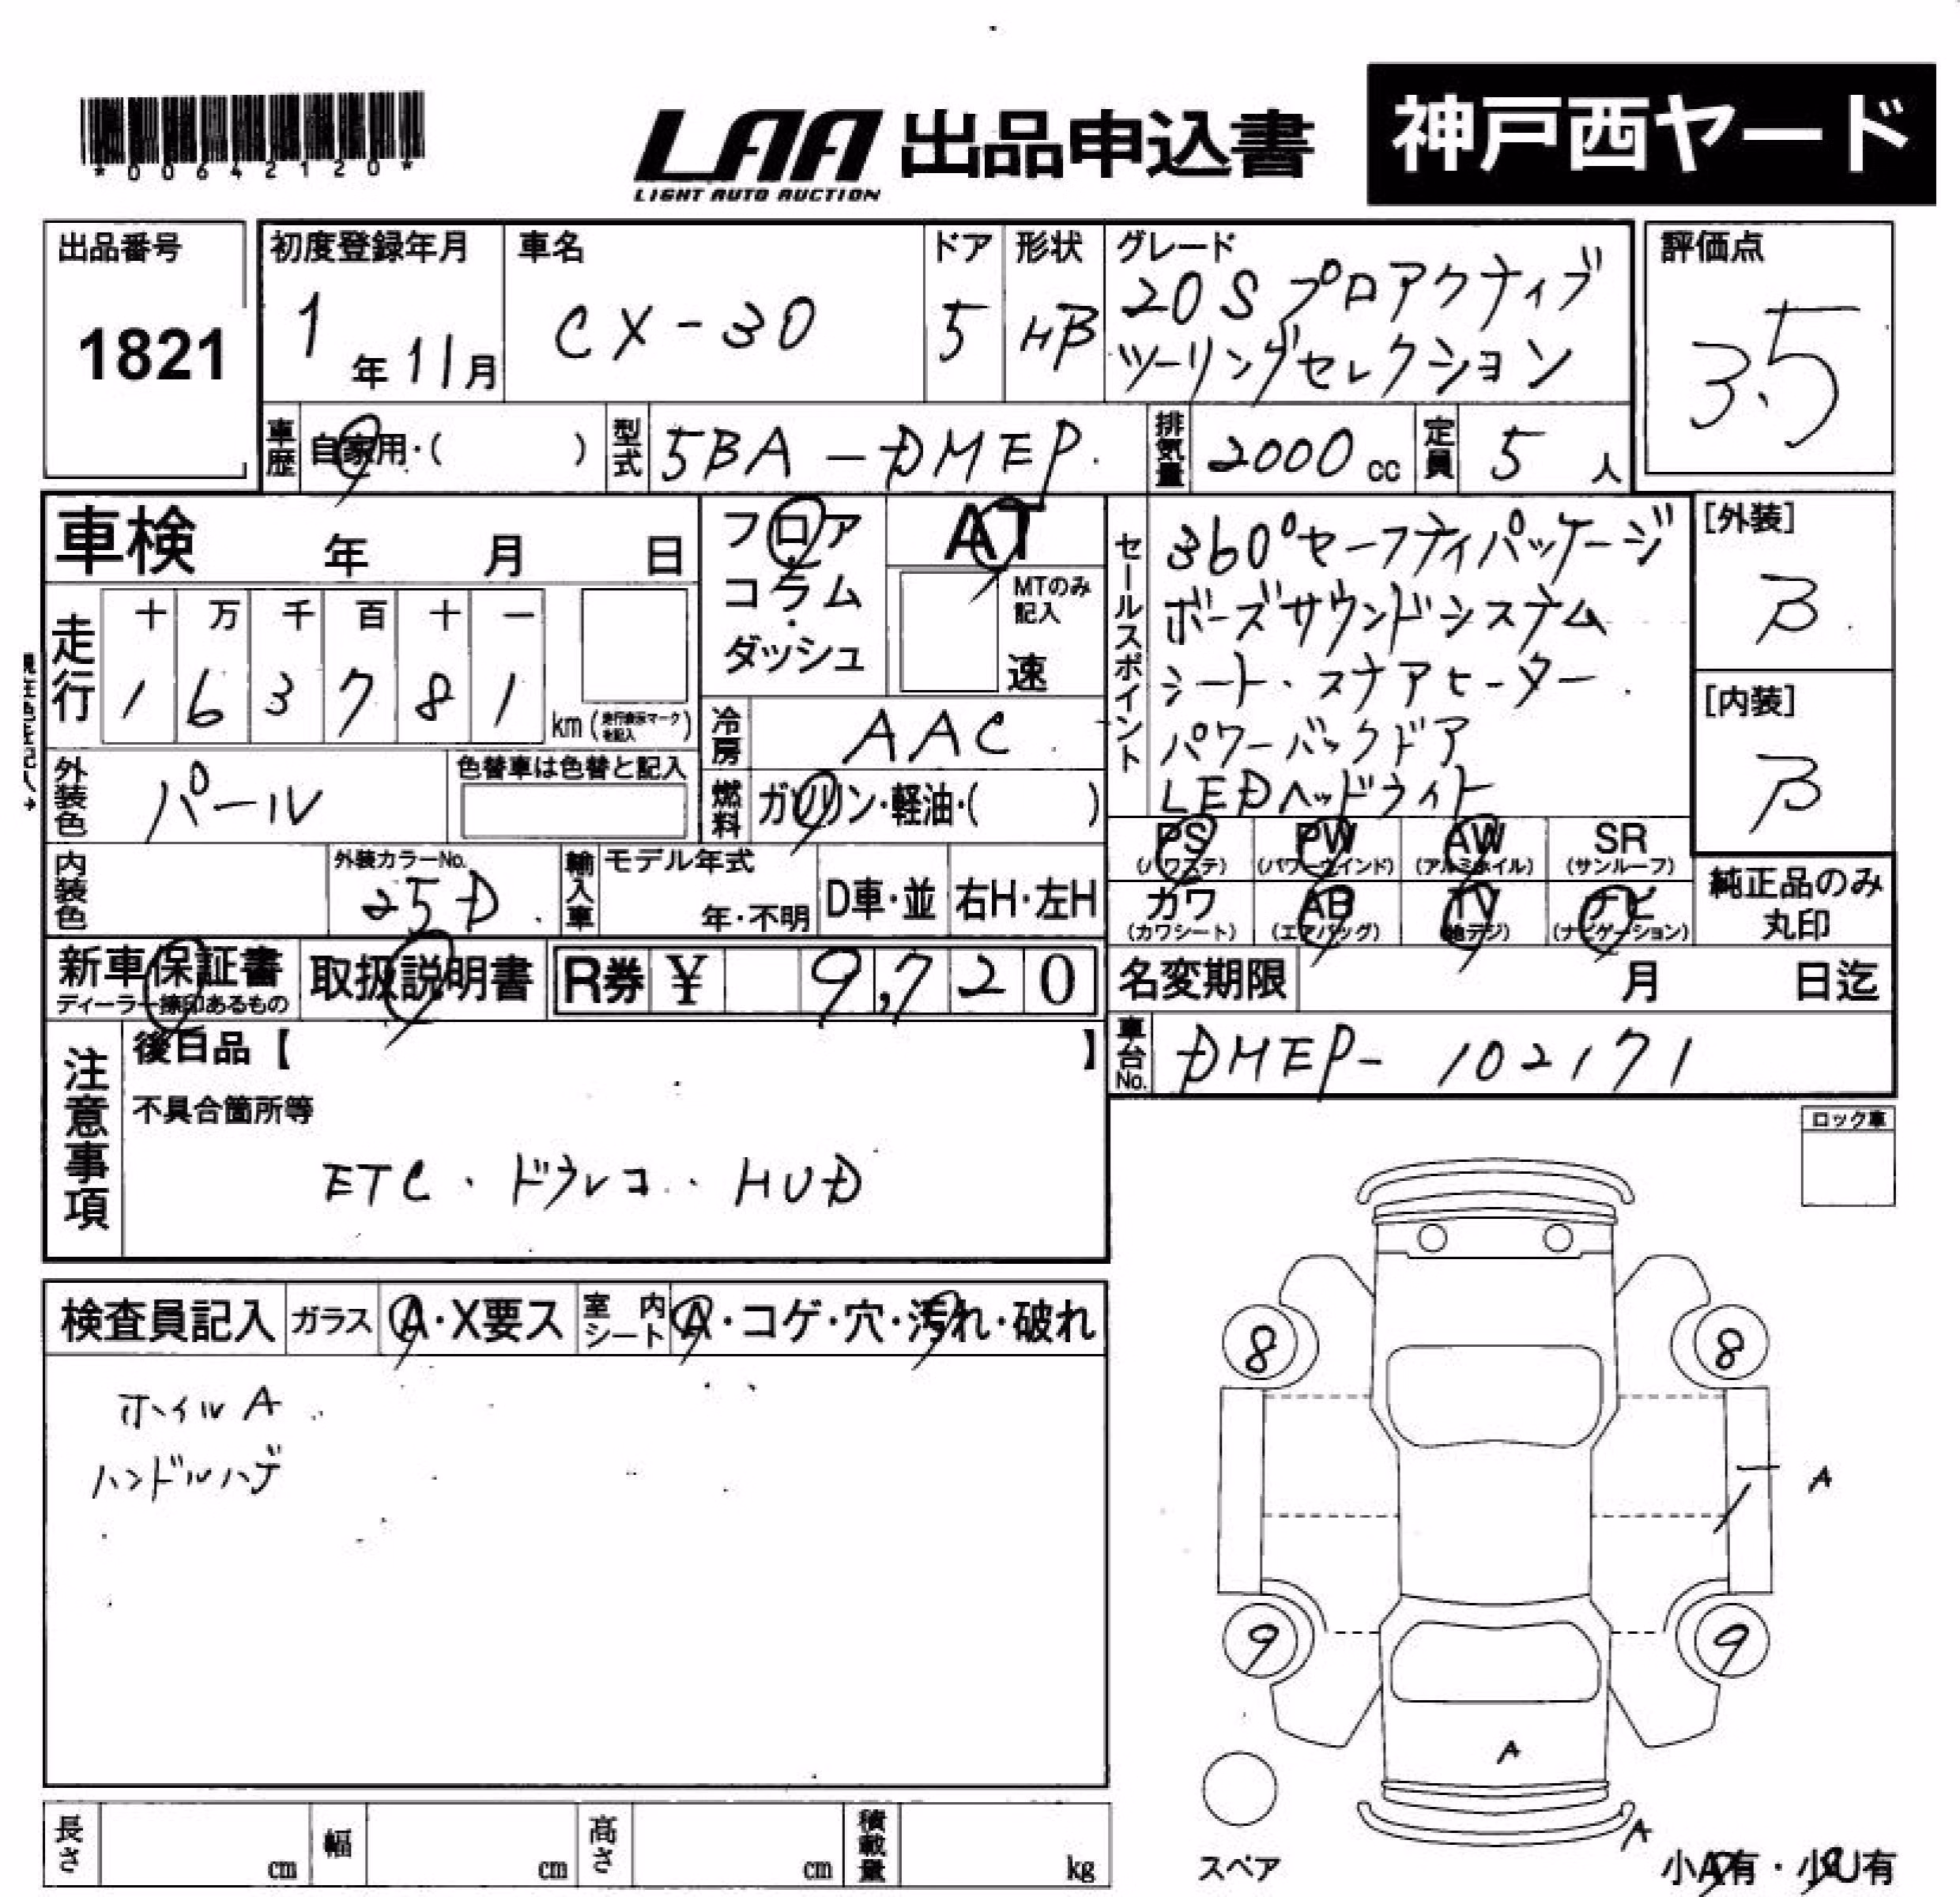 *00642120*
LAA 出品申込書
LIGHT AUTO AUCTION
神戸西ヤード
出品番号
1821
初度登録年月
1年11月
車名
CX-30
ドア
5
形状
HB
グレード
20S プロアクティブ
ツーリングセレクション
評価点
3.5
車歴
自家用・( )
型式
5BA-DMEP
排気量
2000cc
定員
5人
車検 年 月 日
フロア
コラム
ダッシュ
AT
MTのみ
記入
速
セールスポイント
360°セーフティパッケージ
ボーズサウンドシステム
シート・ステアヒーター
パワーバックドア
LEDヘッドライト
[外装]
B
[内装]
B
走行
十 万 千 百 十 一
1 6 3 7 8 1
km(走行表示マークを記入)
冷房
AAC
外装色
パール
色替車は色替と記入
燃料
ガソリン・軽油・( )
内装色
外装カラーNo.
25D
輸入車
モデル年式
年・不明
D車・並
右H・左H
PS
(パワステ)
PW
(パワーウインド)
AW
(アルミホイル)
SR
(サンルーフ)
カワ
(カワシート)
AB
(エアバッグ)
TV
(地デジ)
ナビ
(ナビゲーション)
純正品のみ
丸印
新車保証書
ディーラー捺印あるもの
取扱説明書
R券 ¥ 9,720
名変期限 月 日迄
車台No.
DMEP-102171
注意事項
後日品【 】
不具合箇所等
ETC・ドラレコ・HUD
ロック車
検査員記入
ガラス
A・X要ス
室内シート
A・コゲ・穴・汚れ・破れ
ホイルA
ハンドルハゲ
8
8
A
9
9
A
A
スペア
小A有・小U有
長さ cm
幅 cm
高さ cm
積載量 kg